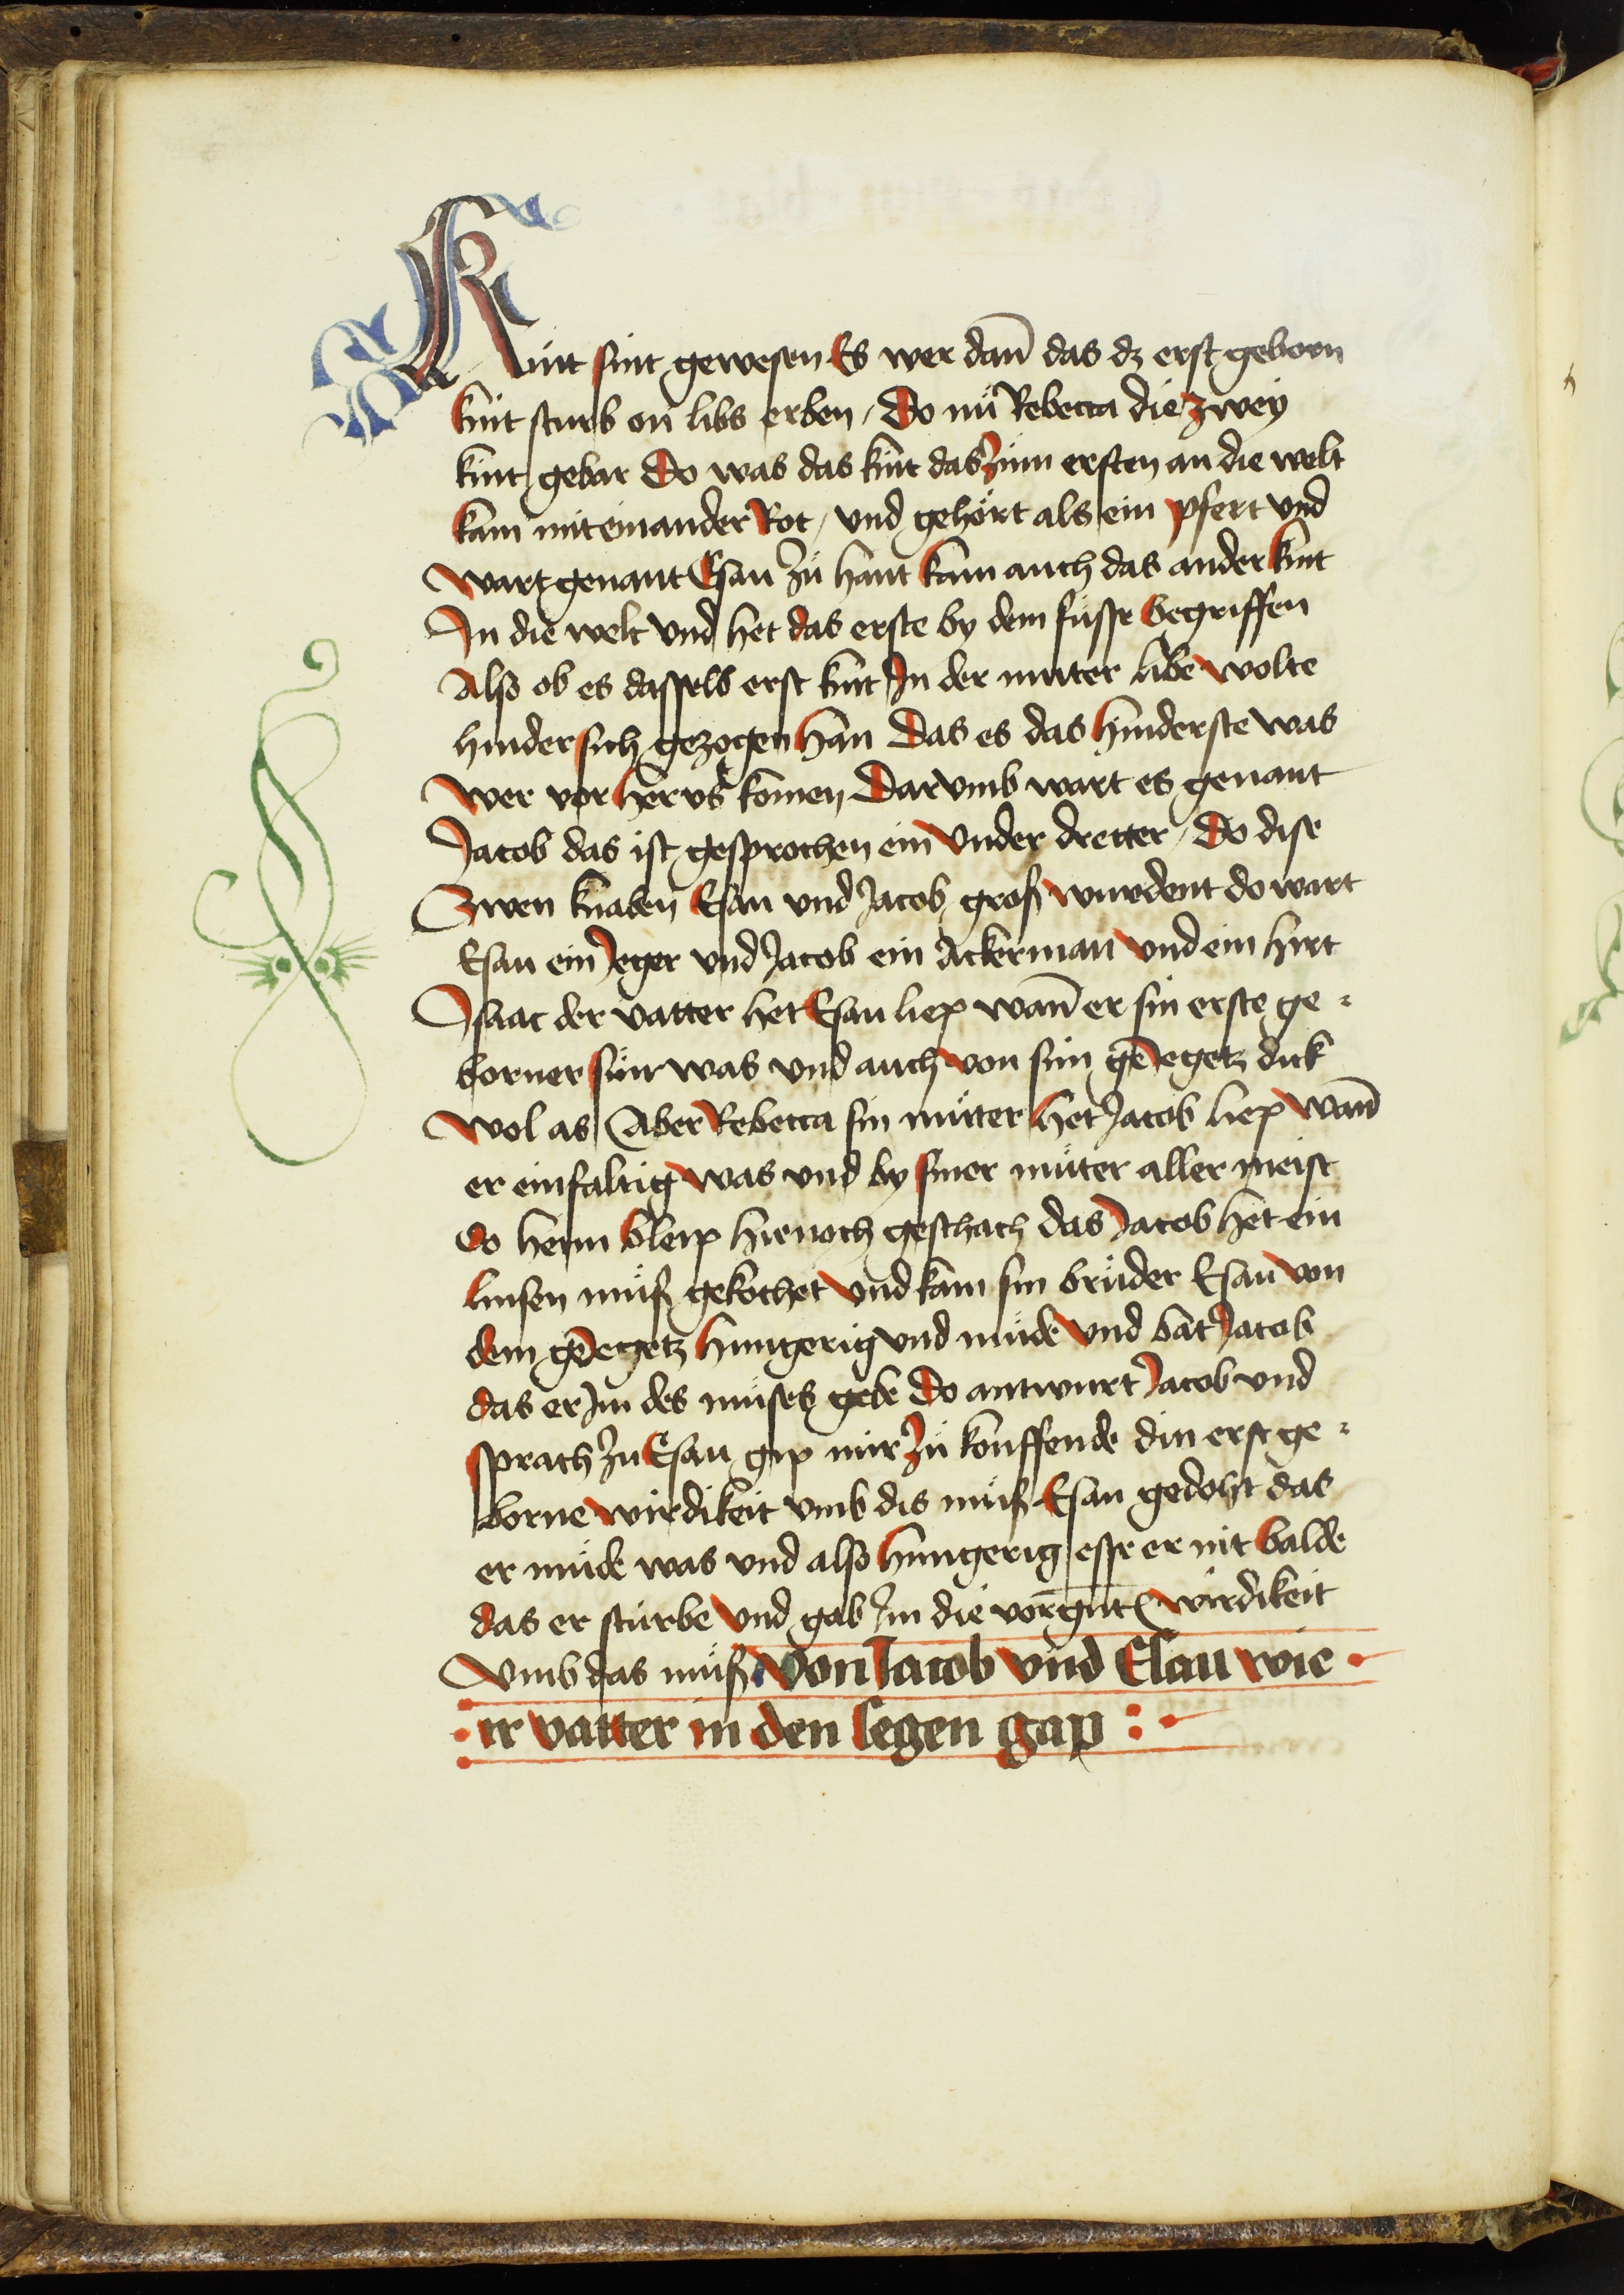 Kint sint gewesen Es wer dan̄ das dz erst geborn
kint sturb on libs erben / Do nů Rebecca die zwey
kint gebar Do was das kint das zům ersten an die welt
kam mit einander Rot / vnd gehört als ein pfert vnd
wart genant Esau Zů hant kam auch das ander kint
Jn die welt vnd het das erste by dem fůsse begriffen
Also ob es dasselb erst kint Jn der můter libe wolte
hinder sich gezogen han Das es das hinderste was
wer vor her vs komen Dar vmb wart es genant
Jacob das ist gesprochen ein vnder dretter / Do dise
Zwen knaben Esau vnd Jacob groß wurdent do wart
Esau ein Jeger vnd Jacob ein Ackerman vnd ein hirt
Jsaac der vatter het Esau liep wan̄ er sin erste ge⸗
borner sůn was vnd auch von sim geJegetz dick
wol as Aber Rebecca sin můter het Jacob liep wan̄
er einfaltig was vnd by siner můter aller meist
do heim bleip hienoch geschach das Jacob het ein
linsen můß gekochet vnd kam sin brůder Esau von
dem geJegetz hungerig vnd můde vnd bat Jacob
das er Jm des můses gebe Do antwurt Jacob vnd
sprach zu Esau gip mir zů kouffende din erst ge⸗
borne wirdikeit vmb dis můß Esau gedoht das
er můde was vnd also hungerig esse er nit balde
das er sturbe vnd gab Jm die wirdikeit
Vmb das můß Von Jacob vnd Esau wie
ir vatter in den segen gap :